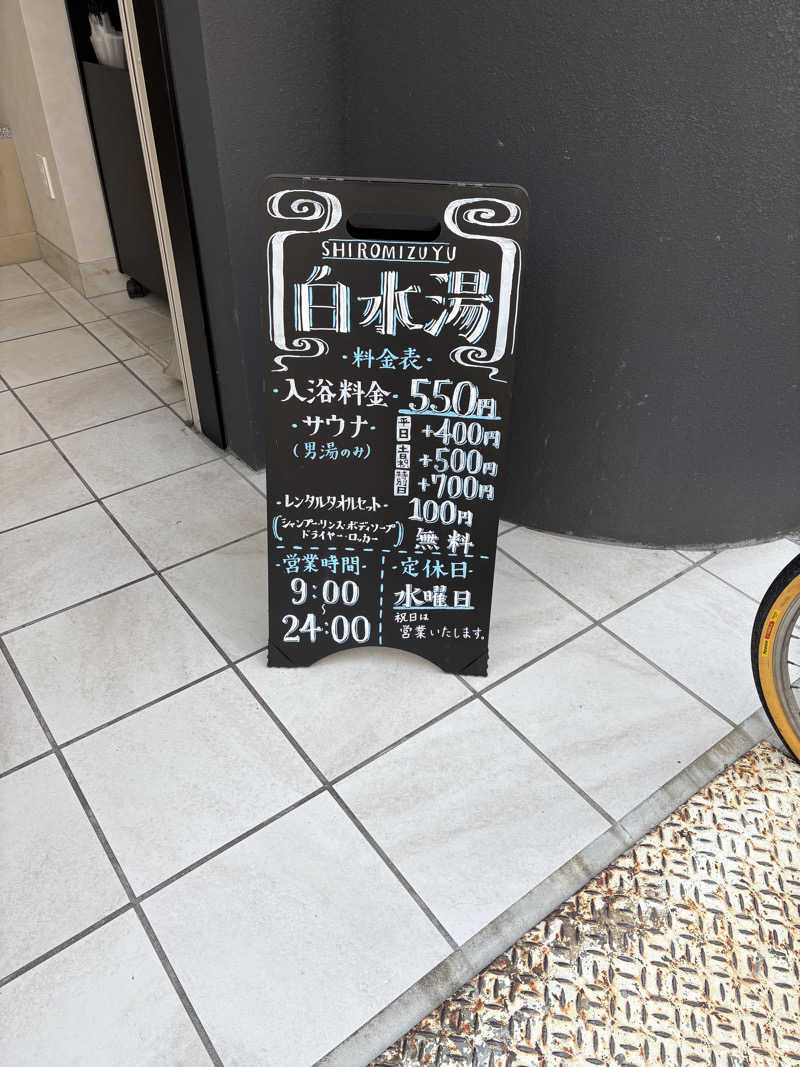 SHIROMIZUYU
白水湯
・料金表・
・入浴料金・ 550円
・サウナ・ 平日 +400円
(男湯のみ) 土日祝 +500円
特別日 +700円
・レンタルタオルセット・ 100円
(シャンプー・リンス・ボディソープ
ドライヤー・ロッカー) 無料
・営業時間・
9:00
〜
24:00
・定休日・
水曜日
祝日は
営業いたします。